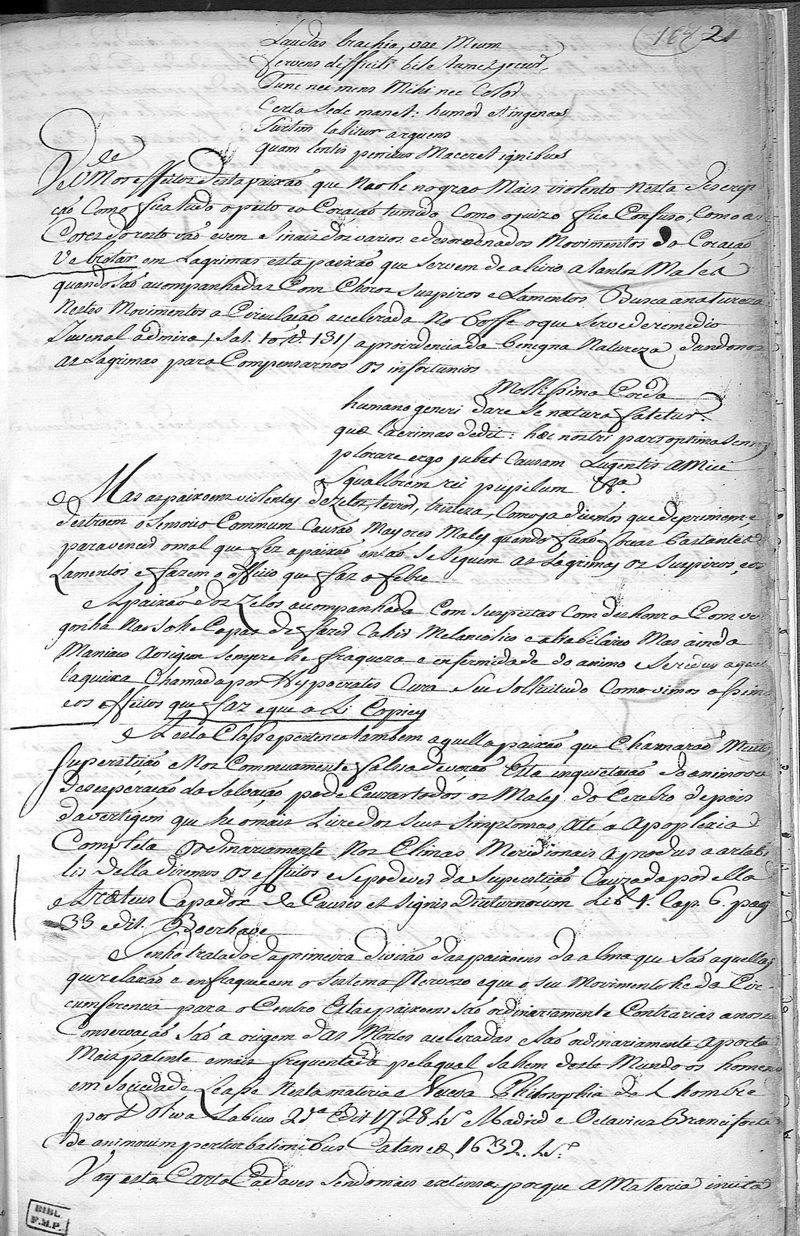 164 21
Laudas brachia, vae Meum
fervens difficili bile tumet jecur.
Tunc nec mens Mihi nec Color
Certa sede manet: humor et in genas
Furtim labitur arguens
quam lentis penitus Macerer ignibus
de
Vemos effeitos desta paixaõ que Naõ he no grao Mais violento Nesta descrip
çaõ Como fica tudo o peito e o Coraçaõ tumido Como o juizo fica Confuso, Como as
Cores do rosto vaõ e vem Sinais dos varios e desordenados Movimentos do Coraçaõ
Ve brotar em Lagrimas esta paixaõ que servem de alivio a tantos Males
quando saõ acompanhadas Com Choros Suspiros e Lamentos. Busca a natureza
Nestes Movimentos a Circulaçaõ accelerada No boffe o que serve de remedio
Juvenal admira (Sat. 15 v. 131) a providencia da benigna Natureza dandonos
as Lagrimas para Compensarnos os infortunios
Mollissima Corda
humano generi dare se natura fatetur.
quae lacrimas dedit: haec nostri pars optima sensus
plorare ergo jubet Causam Lugentis amici
Squalorem rei pupilum &a.
Mas as paixoens violentas de zelos, terror, tristeza, Como ja dicemos que deprimem e
destroem o Sensorio Commum Cauzaõ Mayores Males quando ficaõ forças bastantes
para vencer o mal que fez a paixaõ entaõ se seguem as Lagrimas os Suspiros, e os
Lamentos e fazem o officio que faz a febre
A paixaõ dos Zelos acompanhada Com suspeitas Com deshonra Com ver
gonha Naõ so he Capaz de fazer Cahir Melancolico e atrabilario Mas ainda
Maniaco A origem sempre he fraqueza e enfermidade do animo e se reduz a quel
la queixa Chamada por Hypocrates Cura seu Sollicitudo Como vimos assima
e os effeitos que faz e que ali Copiey
A esta Classe pertence tambem aquella paixaõ que Chamaraõ Muitos
Superstiçaõ e Nos Commumente falsa devoçaõ Esta inquietaçaõ do animo na
desesperaçaõ da Salvaçaõ pode Cauzar todos os Males do Cerebro depois
da vertigem que he o mais Leve dos seus Simptomas até a Apoplexia
Completa Ordinariamente Nos Climas Meridionais a produz a atrabi
lis della diremos os effeitos e se pode ver da Superstiçaõ Cauzada por ella
Aretaeus Capadox de Causis et Signis Diuturnorum Lib 1. Cap. 6. pag
33 edit. Boerhave
Tenho tratado da primeira divizaõ das paixoens da alma que saõ aquellas
que relaxaõ e enfraquecem o Systema Nervozo e que o seu Movimento he da Cir-
cumferencia para o Centro Estas paixoens saõ ordinariamente Contrarias a nossa
Conservaçaõ saõ a origem das Mortes acceleradas e saõ ordinariamente a porta
Mais patente e mais frequentada pela qual sahem deste Mundo os homens
em Sociedade Leasse Nesta materia e Nueva Philosophia del Hombre
por D. Oliva Sabuco 2da Edit 1728 Madrid e Octavius Branciforte
de animorum perturbationibus Catanae 1632.
Vay esta Carta Cada ves sendo mais extensa porque a Materia invita
BIBL.
F.M.P.